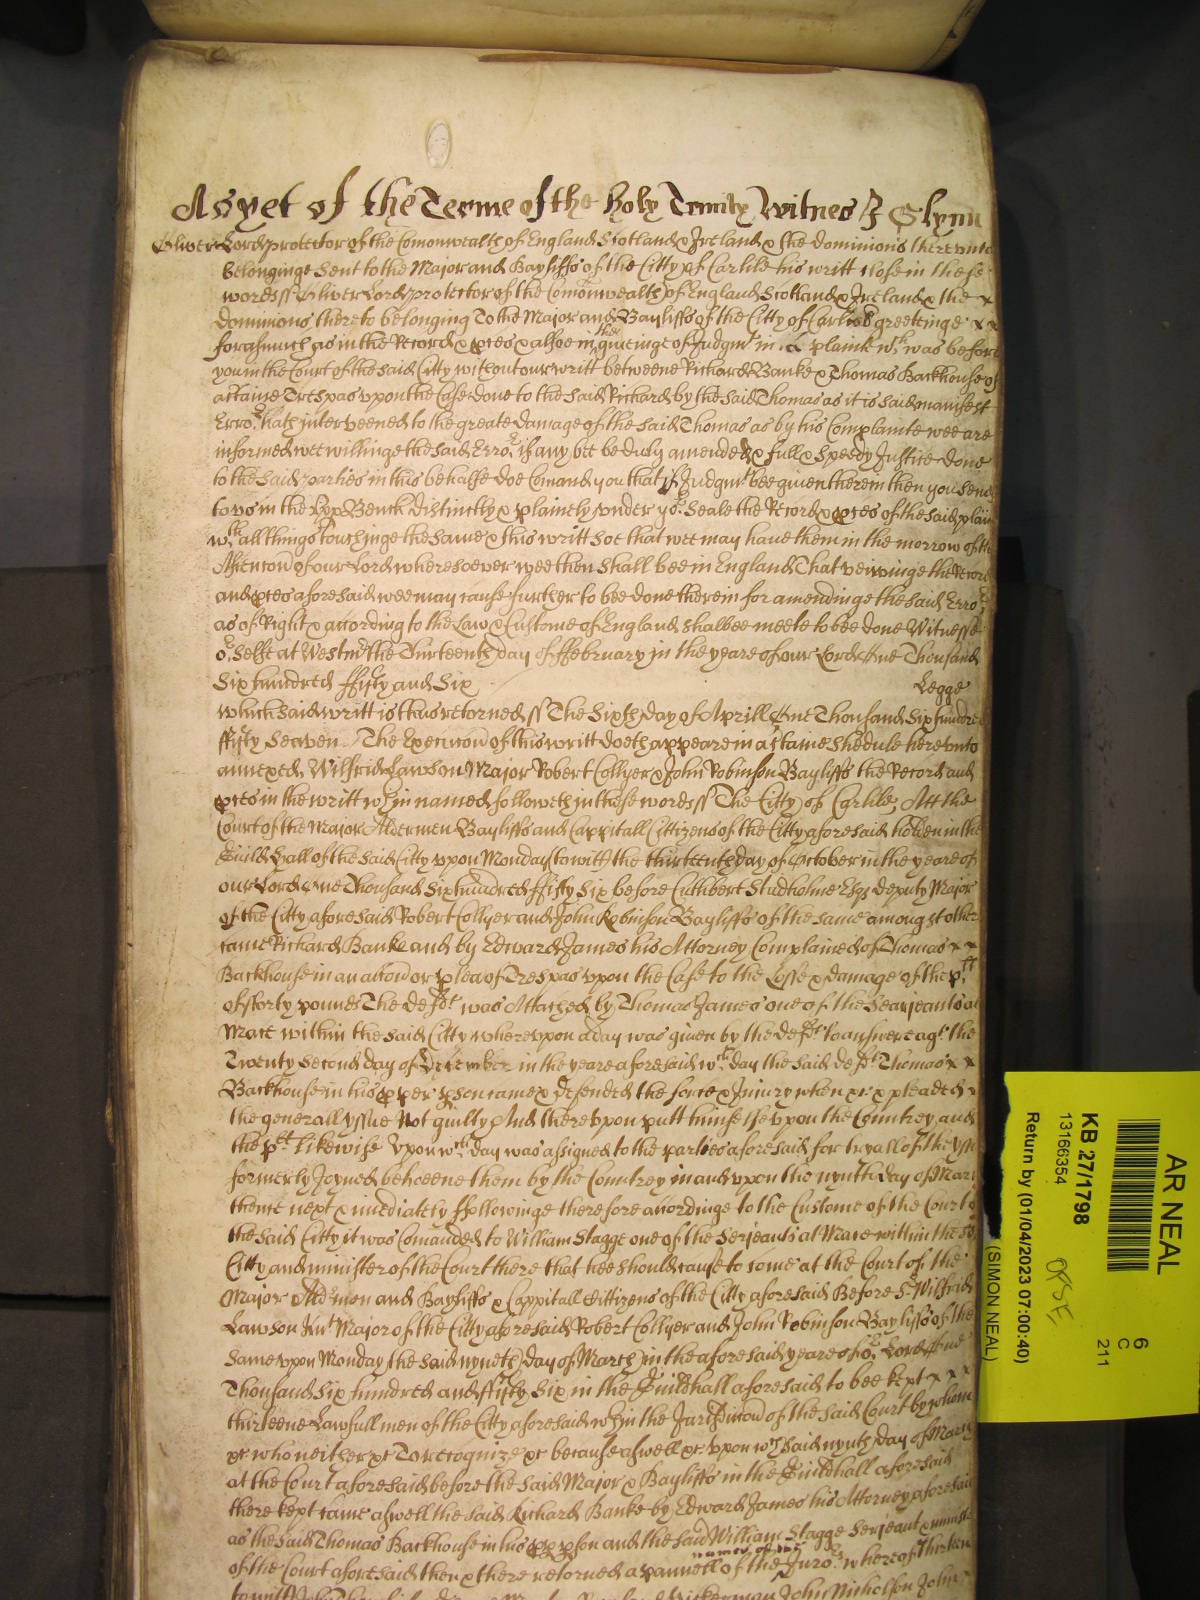 As yet of the Terme of the holy Trinity Witnes J Glynn
Oliver Lord protector of the Comonwealth of England Scotland & Ireland & the dominions thereunto
belonginge sent to the Major and Bayliffs of the Citty of Carlile his writt close in these
words ss Oliver Lord protector of the Comonwealth of England Scotland & Ireland & the x
dominions thereto belonging To the Major and Bayliffs of the Citty of Carlile greetinge x x
forasmuch as in the Record & pces & alsoe in the giveinge of Judgmt in a plaint wch was before
you in the Court of the said Citty without our writt betweene Richard Banke & Thomas Backhouse of
a ctaine Trespas upon the Case done to the said Richard by the said Thomas as it is said manifest
Error hath interveened to the greate damage of the said Thomas as by his Complainte wee are
informed wee willinge the said Error if any bee be duly amended & full & speedy Justice done
to the said parties in this behalfe doe Comand you that if Judgmt bee given therein then you send
to us in the Upp Bench distinctly & plainely under yor Seale the Record & pces of the said plaint
wth all things touchinge the same & this writt soe that wee may have them in the morrow of the
Ascencon of our Lord wheresoever wee then shall bee in England That veiwinge the Record
and pces aforesaid wee may cause further to bee done therein for amendinge the said Error
as of Right & according to the Law & Custome of England shalbee meete to bee done Witnesse
or selfe at Westmr the Thirteenth day of ffebruary in the yeare of our Lord One Thousand
Six hundred ffifty and Six
Legge
which said writt is thus retorned ss The Sixth day of Aprill One Thousand Six hundred
ffifty Seaven The Execucon of this writt doeth appeare in a ctaine shedule hereunto
annexed Wilfrid Lawson Major Robert Collyer & John Robinson Bayliffs the Record and
pces in the writt wthin named followeth in these words ss The Citty of Carlile Att the
Court of the Major Aldermen Bayliffs and Cappitall Cittizens of the Citty aforesaid holden in the
Guild hall of the said Citty upon Monday (to witt) the thirteenth day of October in the yeare of
our Lord One Thousand Six hundred ffifty Six before Cuthbert Studholme Esqr deputy Major
of the Citty aforesaid Robert Collyer and John Robinson Bayliffs of the same amongst other
came Richard Banke and by Edward James his Attorney Complained of Thomas x x
Backhouse in an accon or plea of Trespas upon the Case to the Losse & damage of the plt
of forty pounds The defdt was Attached by Thomas James one of the Searjeants at
Mace within the said Citty whereupon a day was given by the defdt to answere agt the
Twenty Second day of December in the yeare aforesaid wch day the said defdt Thomas x x
Backhouse in his pper pson came & defended the force & Injury when &c & pleaded x
the generall yssue Not guilty And thereupon putt himselfe upon the Countrey and
the plt likewise Upon wch day was assigned to the parties aforesaid for tryall of the yssue
formerly Joyned betweene them by the Countrey in and upon the nynth day of March
thence next & imediately ffollowinge therefore accordinge to the Custome of the Court of
the said Citty it was Comanded to William Stagge one of the Serjeants at Mace within the sd
Citty and minister of the Court there that hee should cause to come at the Court of the
Major Aldrmen and Bayliffs & Cappitall Cittizens of the Citty aforesaid Before Sr Wilfrid
Lawson Knt Major of the Citty aforesaid Robert Collyer and John Robinson Bayliffs of the
same upon Monday the said nyneth day of March in the aforesaid yeare of or Lord One
Thousand Six hundred and ffifty Six in the Guildhall aforesaid to bee kept x x x
thirteene Lawfull men of the Citty aforesaid wthin the Jurisdiccon of the said Court by whom
&c who neither &c To recognize &c because aswell &c upon wch said nynth day of March
at the Court aforesaid before the said Major & Bayliffs in the Guildhall aforesaid
there kept came aswell the said Richard Banke by Edward James his Attorney aforesaid
as the said Thomas Backhouse in his pp pson and the said William Stagge Serjeant & minister
of the Court aforesaid then & there retorned a pannell of the names of the Juror whereof Thirteen
to witt John Nicholson John
AR NEAL
6
C
211
KB 27/1798
13166354
Return by (01/04/2023 07:00:40)
(SIMON NEAL)